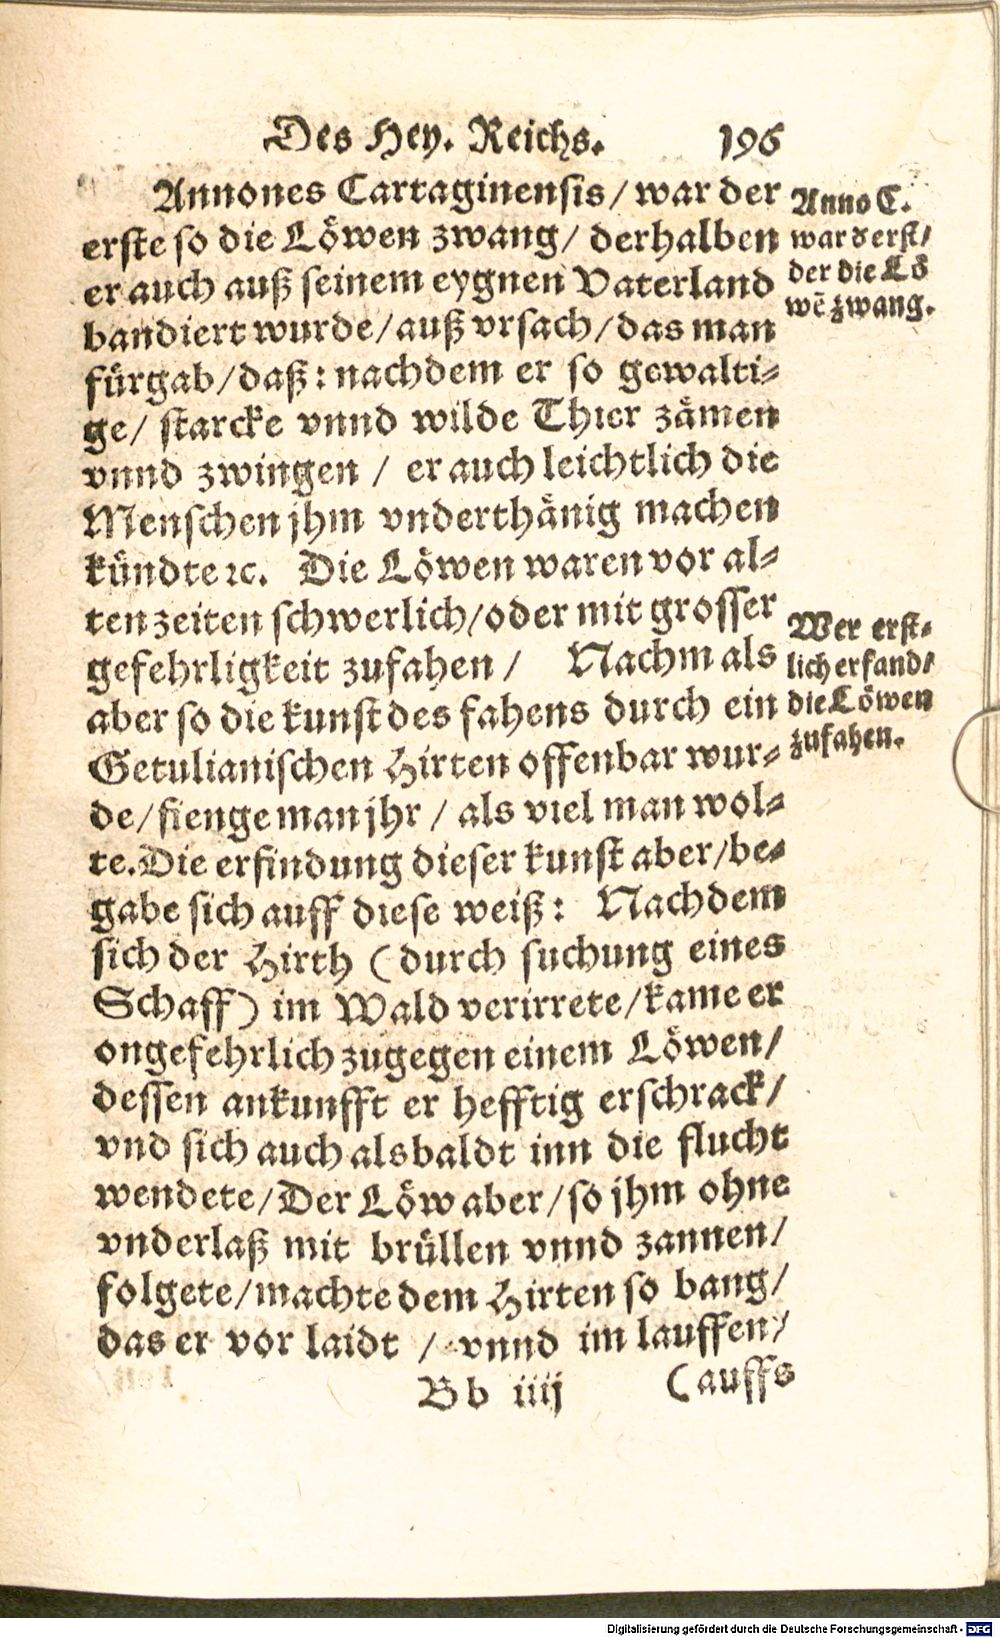 Des Hey. Reichs. 196
Annones Cartaginensis/ war der
erste so die Löwen zwang/ derhalben
er auch auß seinem eygnen Vaterland
bandiert wurde/auß vrsach/das man
fürgab/daß: nachdem er so gewalti-
ge/ starcke vnnd wilde Thier zämen
vnnd zwingen / er auch leichtlich die
Menschen jhm vnderthänig machen
kündte ꝛc. Die Löwen waren vor al-
ten zeiten schwerlich/oder mit grosser
gefehrligkeit zufahen / Nachmals
aber so die kunst des fahens durch ein
Getulianischen Hirten offenbar wur-
de/fienge man jhr / als viel man wol-
te. Die erfindung dieser kunst aber/be-
gabe sich auff diese weiß: Nachdem
sich der Hirth (durch suchung eines
Schaff) im Wald verirrete/kame er
ongefehrlich zugegen einem Löwen/
dessen ankunfft er hefftig erschrack/
vnd sich auch alsbaldt inn die flucht
wendete/Der Löw aber/so jhm ohne
vnderlaß mit brüllen vnnd zannen/
folgete/machte dem Hirten so bang/
das er vor laidt / vnnd im lauffen/
Bb iiij (auffs
Anno C.
war d erst/
der die Lö
wẽ zwang.
Wer erst-
lich erfand/
die Löwen
zufahen.
Digitalisierung gefördert durch die Deutsche Forschungsgemeinschaft - DFG